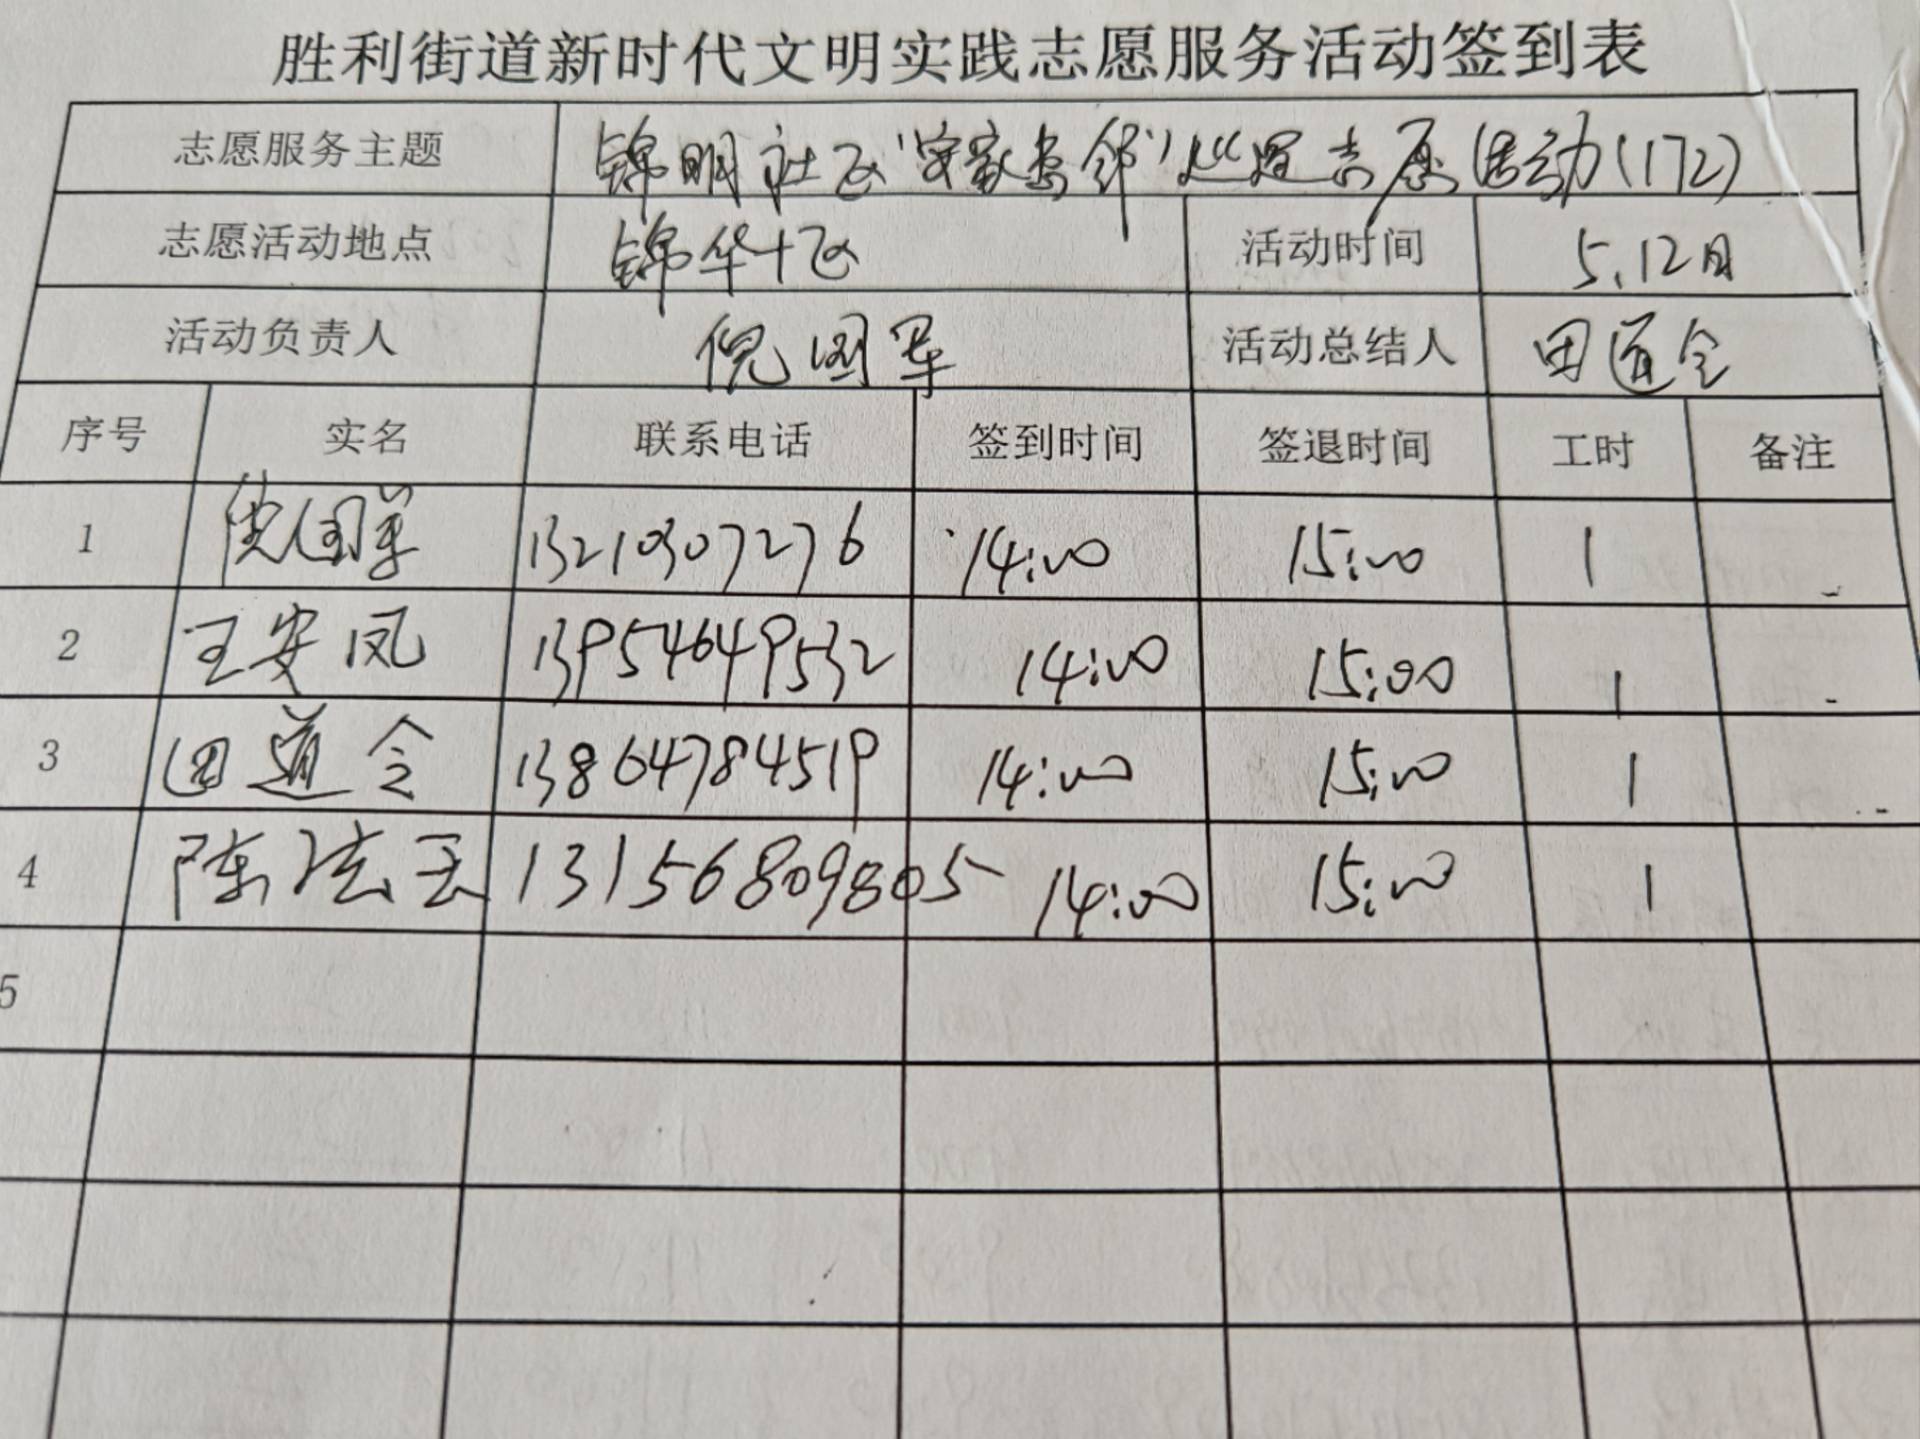 胜利街道新时代文明实践志愿服务活动签到表
志愿服务主题 锦明社区"安家安邻"巡逻志愿活动(172)
志愿活动地点 锦华十区 活动时间 5.12日
活动负责人 倪国军 活动总结人 田道令
序号 实名 联系电话 签到时间 签退时间 工时 备注
1 倪国军 13210307276 14:00 15:00 1
2 王安凤 13954649532 14:00 15:00 1
3 田道令 13864784519 14:00 15:00 1
4 陈法玉 13156809805 14:00 15:00 1
5